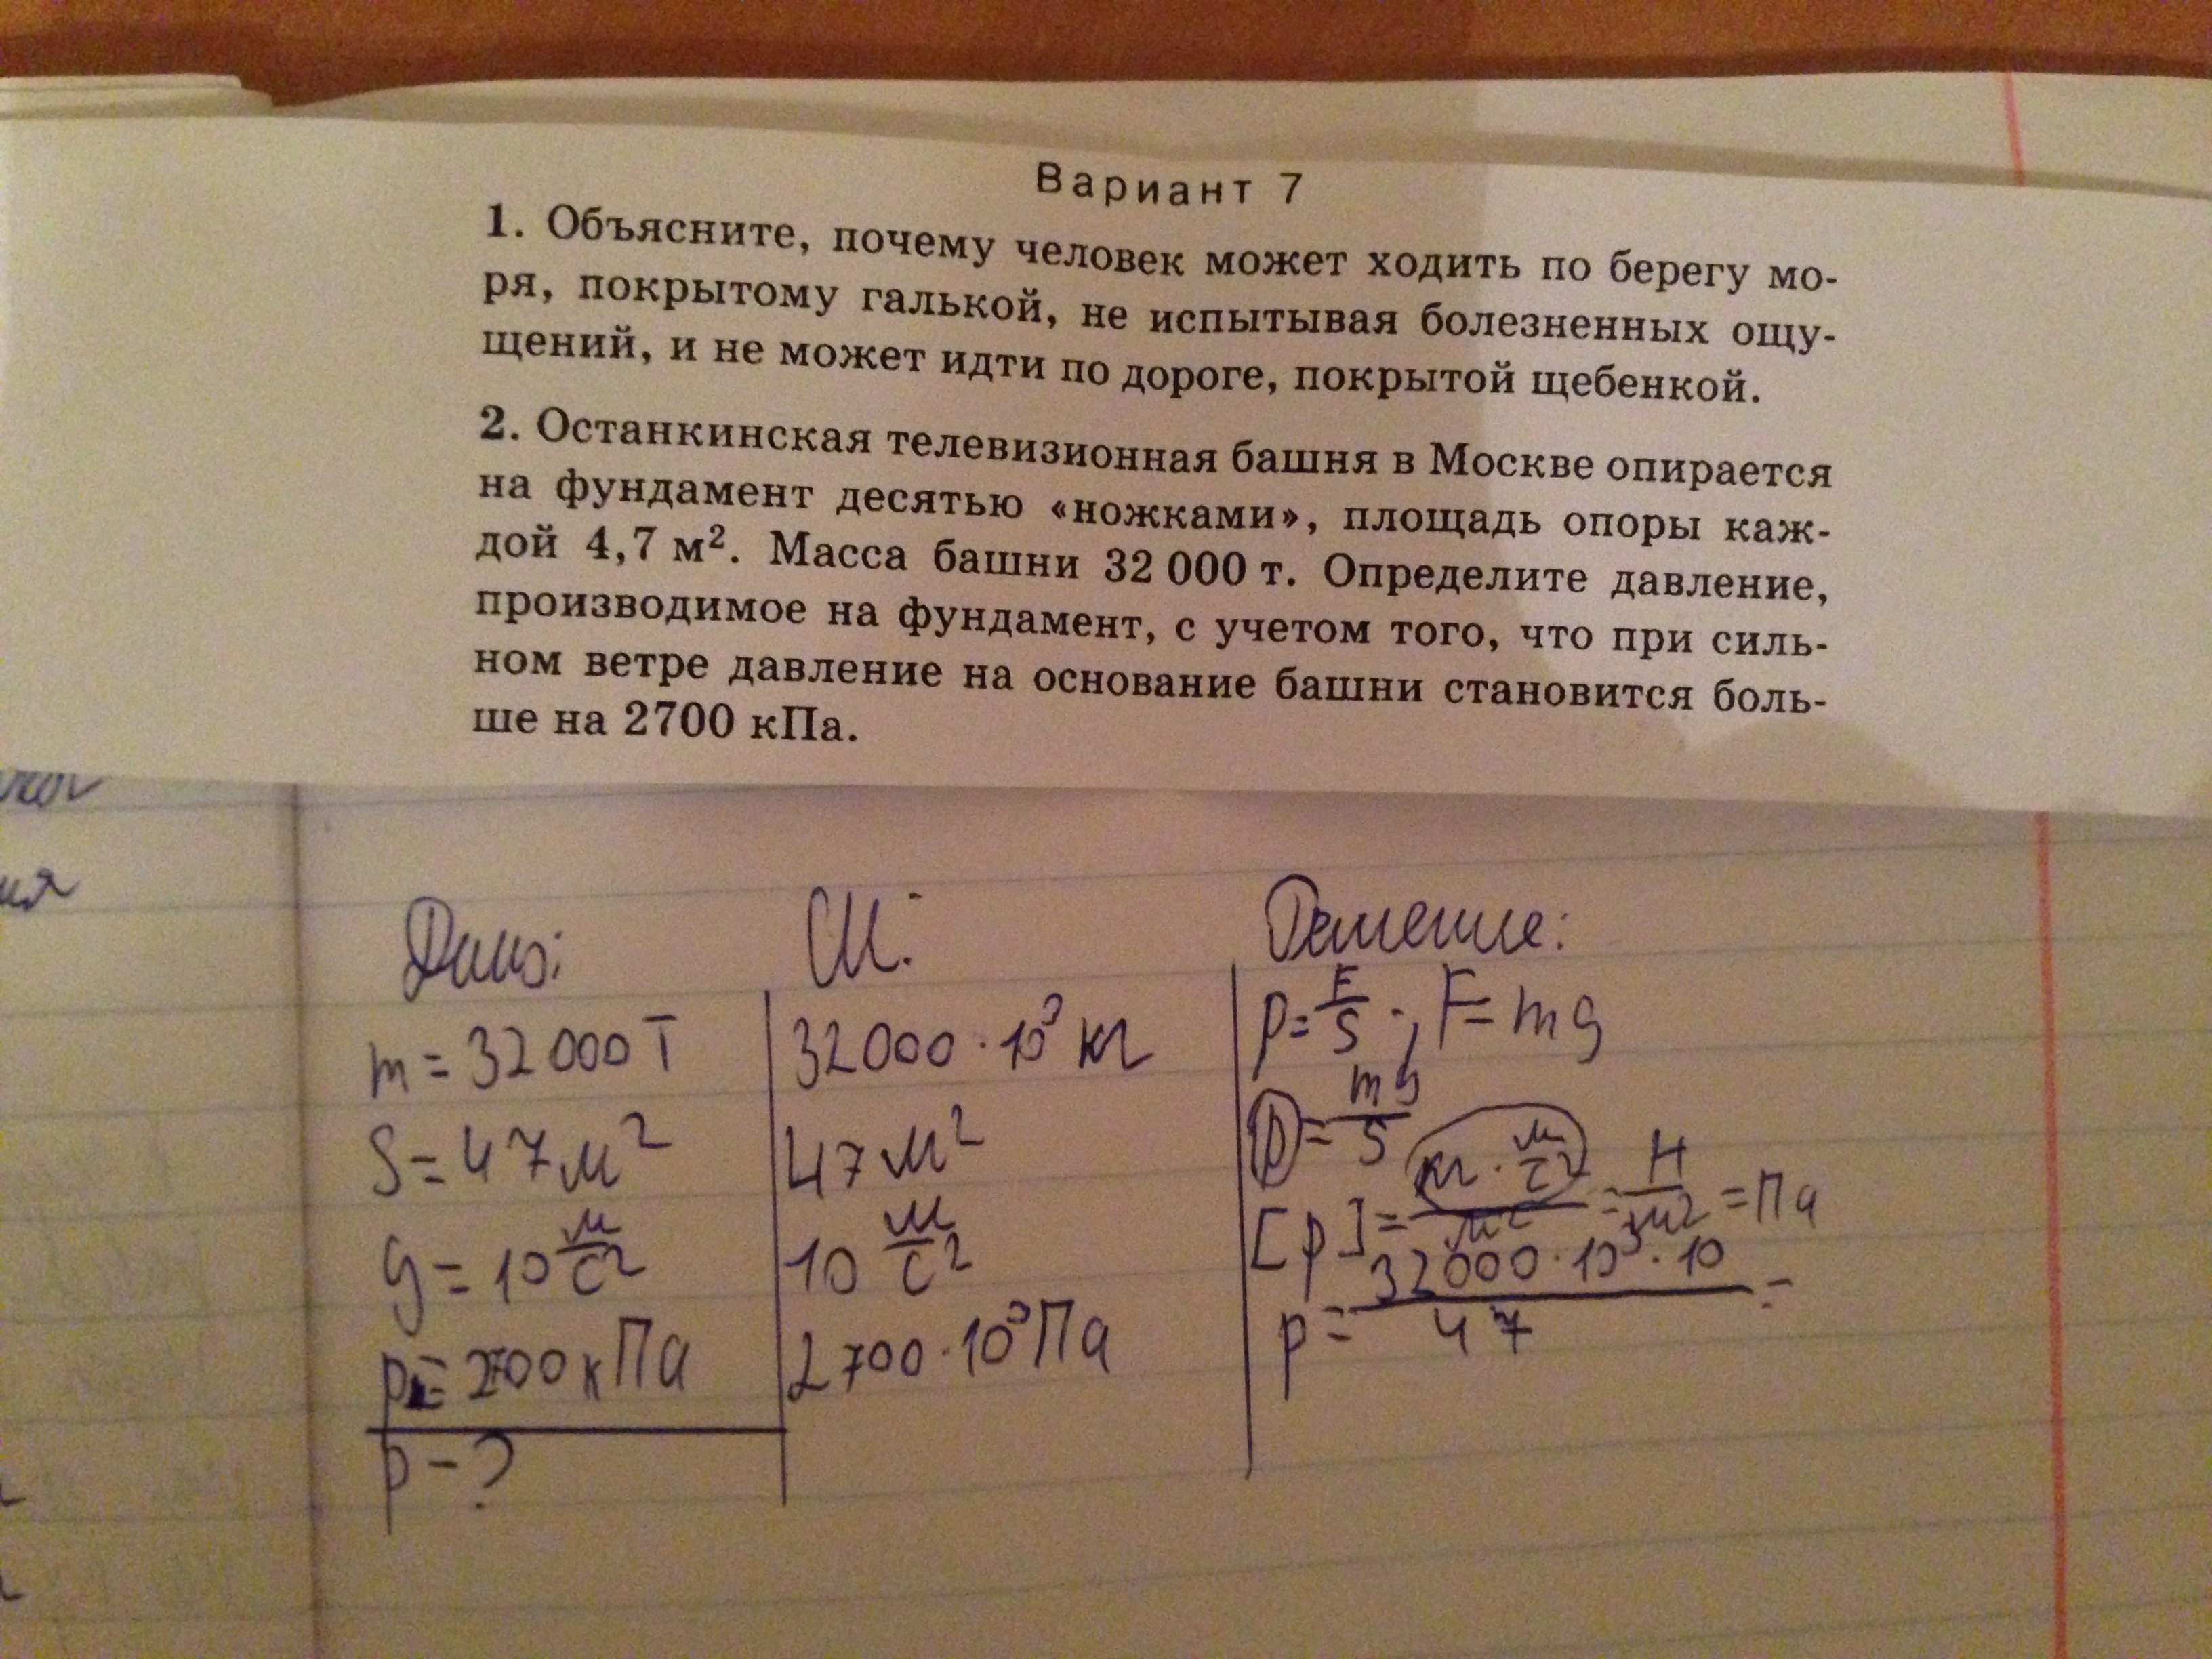 Вариант 7
1. Объясните, почему человек может ходить по берегу мо-
ря, покрытому галькой, не испытывая болезненных ощу-
щений, и не может идти по дороге, покрытой щебенкой.
2. Останкинская телевизионная башня в Москве опирается
на фундамент десятью «ножками», площадь опоры каж-
дой 4,7 м². Масса башни 32 000 т. Определите давление,
производимое на фундамент, с учетом того, что при силь-
ном ветре давление на основание башни становится боль-
ше на 2700 кПа.
ия
Дано:
m = 32 000 т
S = 47 м²
g = 10 м/с²
p = 2700 кПа
p - ?
СИ:
32000 · 10³ кг
47 м²
10 м/с²
2700 · 10³ Па
Решение:
p = F/S ; F = mg
p = mg/S
[p] = кг · м/с² / м² = Н/м² = Па
p = 32000 · 10³ · 10 / 47 =